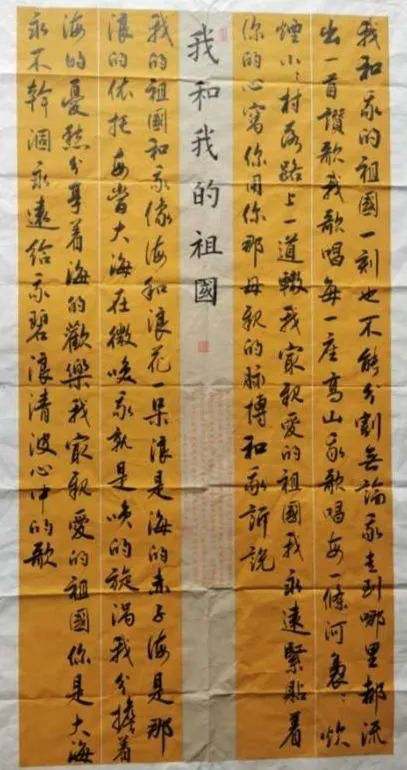 我和我的祖國一刻也不能分割無論我走到哪里都流
出一首讚歌我歌唱每一座高山我歌唱每一條河裊〻炊
煙小〻村落路上一道轍我冣親愛的祖國我永遠緊貼着
你的心窩你用你那母親的脉博和我訴說
我和我的祖國
我的祖國和我像海和浪花一朵浪是海的赤子海是那
浪的依托每當大海在微咲我就是咲的旋渦我分擔着
海的憂愁分享着海的歡樂我冣親愛的祖國你是大海
永不幹涸永遠給我碧浪清波心中的歌